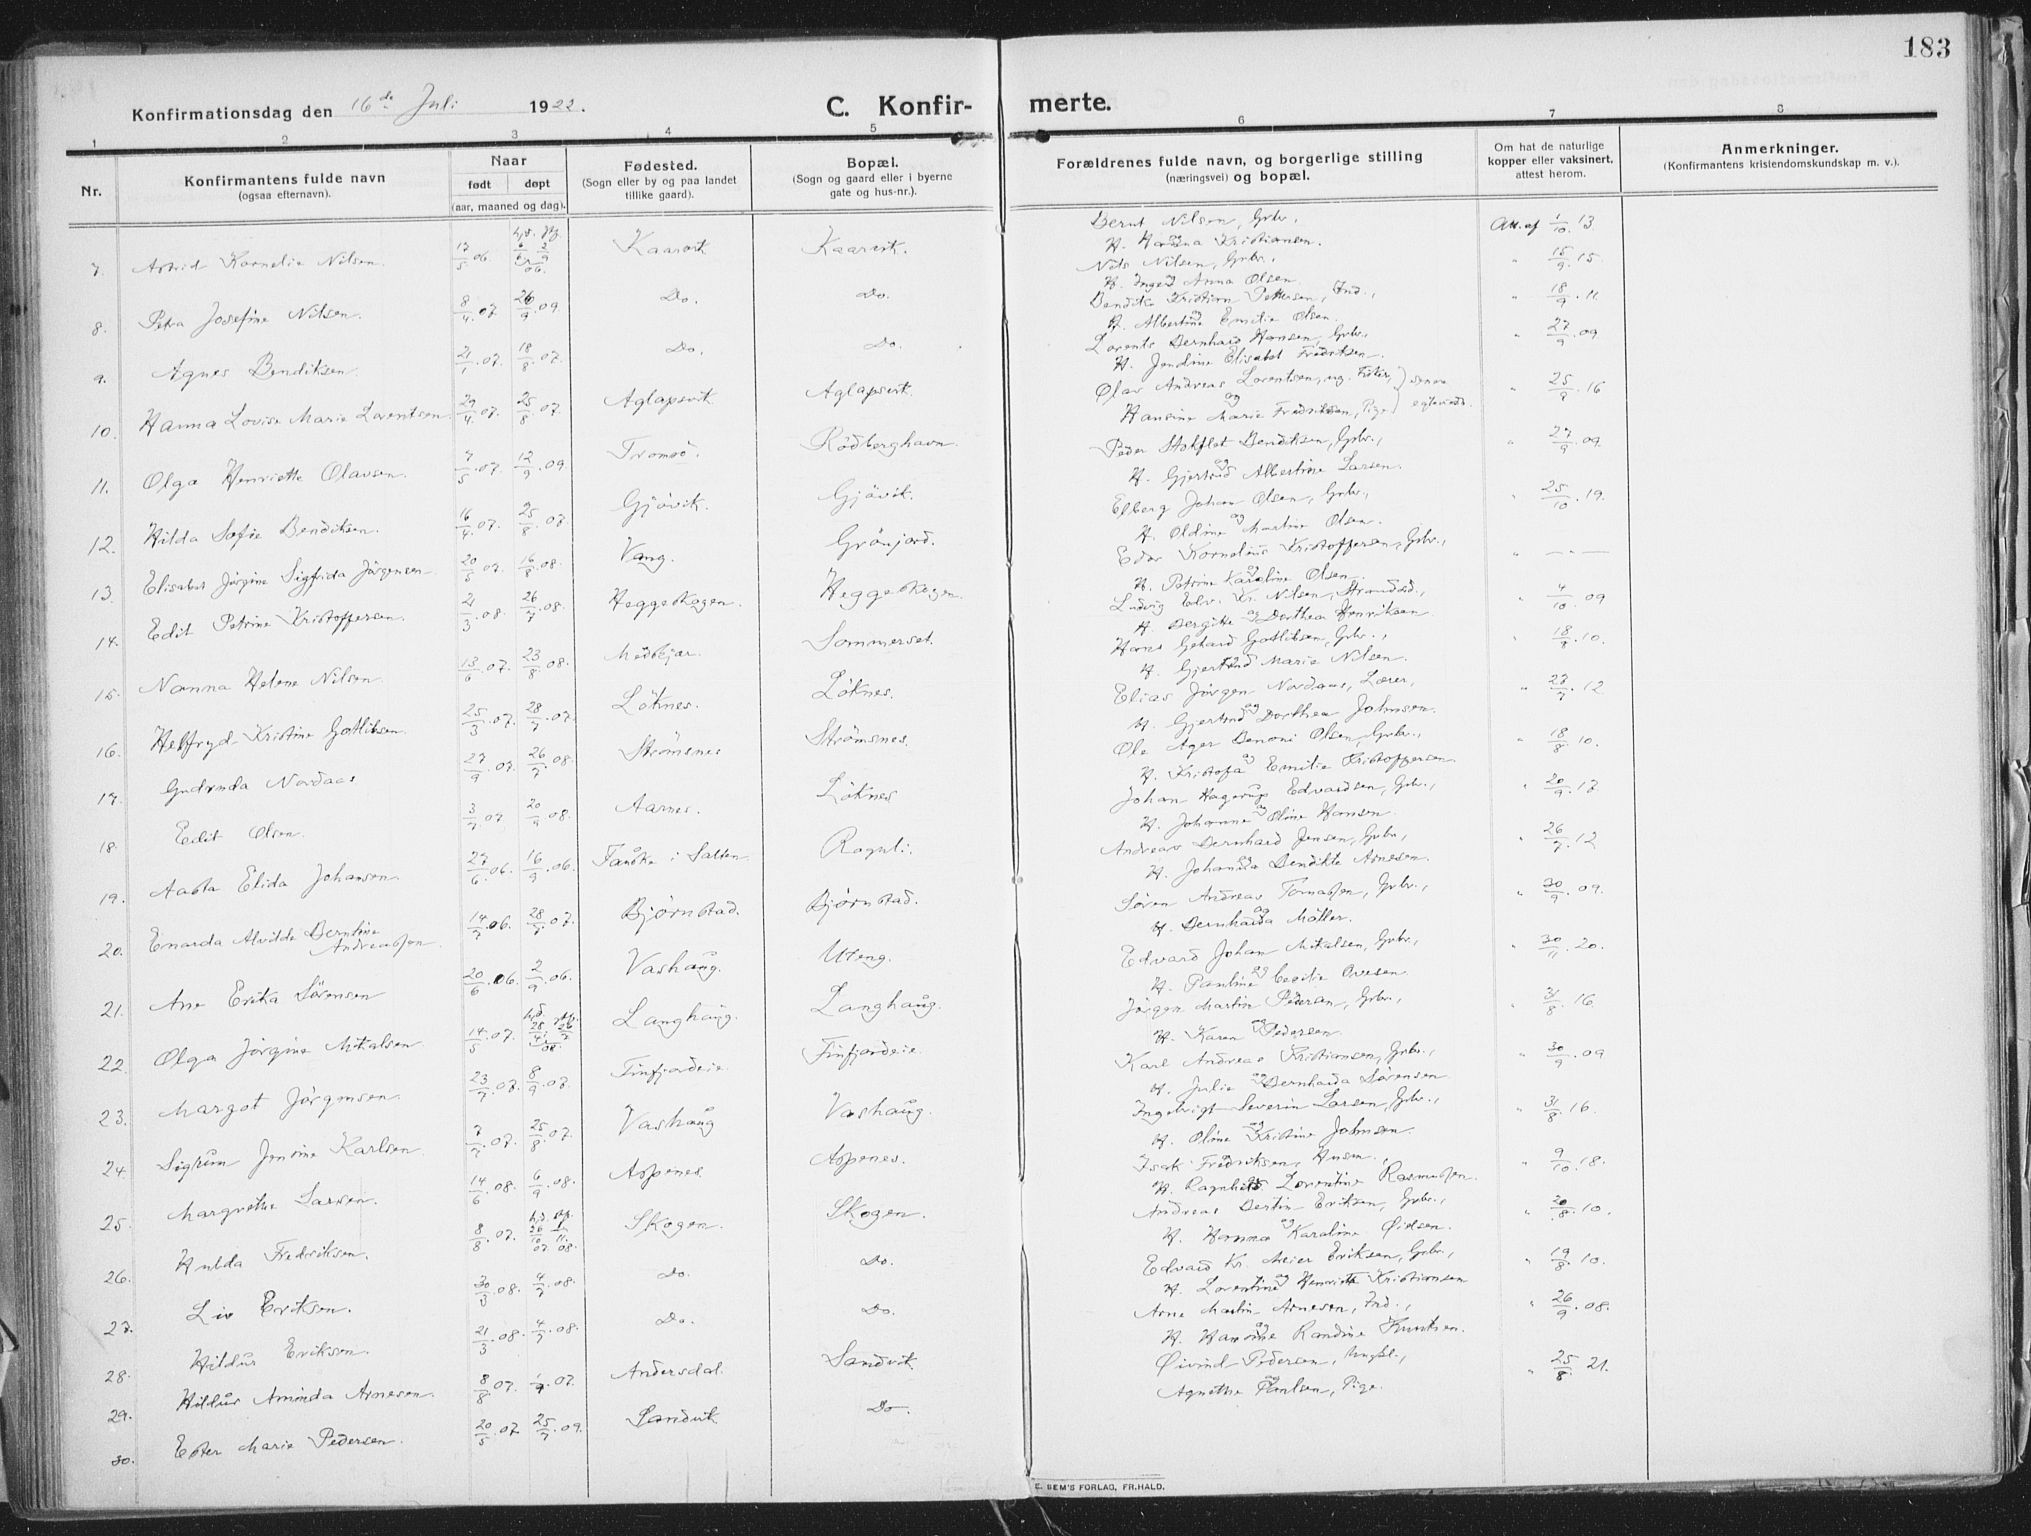 183
Konfirmationsdag den 16de Juli 1922.
C. Konfir- merte.
1 2 3 4 5 6 7 8
Nr.
Konfirmantens fulde navn
(ogsaa efternavn).
Naar
født døpt
(aar, maaned og dag).
Fødested.
(Sogn eller by og paa landet
tillike gaard).
Bopæl.
(Sogn og gaard eller i byerne
gate og hus-nr.).
Forældrenes fulde navn, og borgerlige stilling
(næringsvei) og bopæl.
Om hat de naturlige
kopper eller vaksinert,
attest herom.
Anmerkninger.
(Konfirmantens kristendomskundskap m. v.).
7. Astrid Kornelie Nilsen. 17/5 06. Kaarvik Kaarvik.
Bernt Nilsen, Grbr.
og H. Hansina Kristiansen. Att. af 1/10 13.
8. Petra Josefine Nilsen. 8/4 07 26/9 09. Do. Do.
Nils Nilsen, Grbr.,
og H. Inger Anna Olsen " 15/9 15.
9. Agnes Bendiksen 21/1 07. 18/8 07. Do. Do.
Bendiks Kristian Pettersen, Ind.,
og H. Albertine Emilie Olsen. " 18/9 11.
10. Hanna Lovise Marie Lorentsen 29/4 07. 25/8 07. Aglapsvik Aglapsvik.
Lorents Bernhard Hansen, Grbr.,
H. Jendine Elisabet Fredriksen. " 27/9 09
11. Olga Henriette Olavsen. 7/5 07. 12/9 09 Tromsö. Rödberghavn.
Olav Andreas Lorentsen, ug. Fisker,
og Hansine Marie Fredriksen, Pige } senere egteviede. " 25/8 16
12. Hilda Sofie Bendiksen. 16/4 07. 25/8 07 Gjövik. Gjövik.
Peder Stokflet Bendiksen, Grbr.,
og H. Gjertrud Albertine Larsen. " 27/9 09.
13. Elisabet Jörgine Sigfrida Jörgensen 20/5 07. 16/8 08. Vang. Grönjord.
Elberg Johan Olsen, Grbr.,
og H. Oldine Martine Olsen. " 25/10 19.
14. Edit Petrine Kristoffersen. 21/3 08. 26/7 08. Heggeskogen. Heggeskogen.
Edor Kornelius Kristoffersen, Grbr.,
og H. Petrine Karoline Olsen. " — " —
15. Nanna Helene Nilsen. 13/6 07. 23/8 08. Medkjær. Sommerset.
Ludvig Edv. Kr. Nilsen, Strandsd.,
og H. Bergitte Dorthea Henriksen " 4/10 09
16. Helfryd Kristine Gotlibsen. 25/3 07. 28/7 07. Löknes. Löknes.
Hans Gehard Gotlibsen, Grbr.,
og H. Gjertrud Marie Nilsen. " 18/8 10.
17. Gudrnda Nordaas 27/9 07. 26/7 08. Strömsnes Strömsnes.
Elias Jörgen Nordaas, Lærer,
og H. Gjertrud Dorthea Johnsen. " 27/7 12
18. Edit Olsen. 3/7 07. 20/9 08. Aarnes. Löknes
Ole Ager Benoni Olsen, Grbr.,
og H. Kristofa Emilie Kristoffersen " 18/8 10.
19. Aasta Elida Johansen. 27/6 06. 16/9 06. Fauske i Salten. Rognli.
Johan Hagerup Edvardsen, Grbr.,
og H. Johanne Oline Hansen. " 20/9 17.
20. Enarda Alvilde Berntine
Andreassen 14/7 06. 28/7 07. Bjørnstad. Bjørnstad.
Andreas Bernhard Jensen, Grbr.,
og H. Johanna Bendikte Arnesen. " 26/7 12
21. Ane Erika Sörensen 20/6 06. 2/9 06. Vashaug. Uteng.
Sören Andreas Tomassen, Grbr.,
og H. Bernharda Möller. " 30/9 09.
22. Olga Jörgine Mikalsen 14/5 07. Langhaug. Langhaug.
Edvard Johan Mikalsen, Grbr.,
og H. Pauline Cecilie Ovesen " 30/11 20.
23. Margot Jörgensen. 23/7 07. 8/9 07. Finfjordeie. Finfjordeie.
Jörgen Martin Pedersen, Grbr.,
og H. Karen Pedersen. " 31/8 16
24. Sigrunn Jensine Karlsen 7/7 07. 25/8 07. Vashaug Vashaug.
Karl Andreas Kristiansen, Grbr.,
og H. Julie Bernharda Sörensen. " 30/9 09
25. Margrethe Larsen. 14/6 08. 6/9 08. Aspenes. Aspenes.
Ingebrigt Severin Larsen, Grbr.,
og H. Oline Kristine Johnsen. " 31/8 16.
26. Hulda Fredriksen. 8/8 07. Skogen. Skogen.
Isak Fredriksen, Husm.,
og H. Ragnhild Lorentine Rasmussen. " 9/10 18.
27. Liv Eriksen. 30/3 08. 4/7 08. Do. Do.
Andreas Bertin Eriksen, Grbr.,
og H. Hanna Karoline Øidsen. " 20/8 10.
28. Hildur Eriksen. 21/3 08. 4/7 08. Do. Do.
Edvard Kr. Meier Eriksen, Grbr.,
og H. Lorentine Henriette Kristiansen " 19/8 10.
29. Hildur Aminda Arnesen. 8/8 07. Andersdal. Sandvik.
Arne Martin Arnesen, Ind.,
og H. Hansine Randine Knutsen. " 26/9 08.
30. Ester Marie Pedersen. 20/5 07 25/7 09. Sandvik Do.
Öivind Pedersen, Ungkl.,
og Agnethe Paulsen, Pige. " 25/8 21.
E. SEM'S FORLAG, FR.HALD.